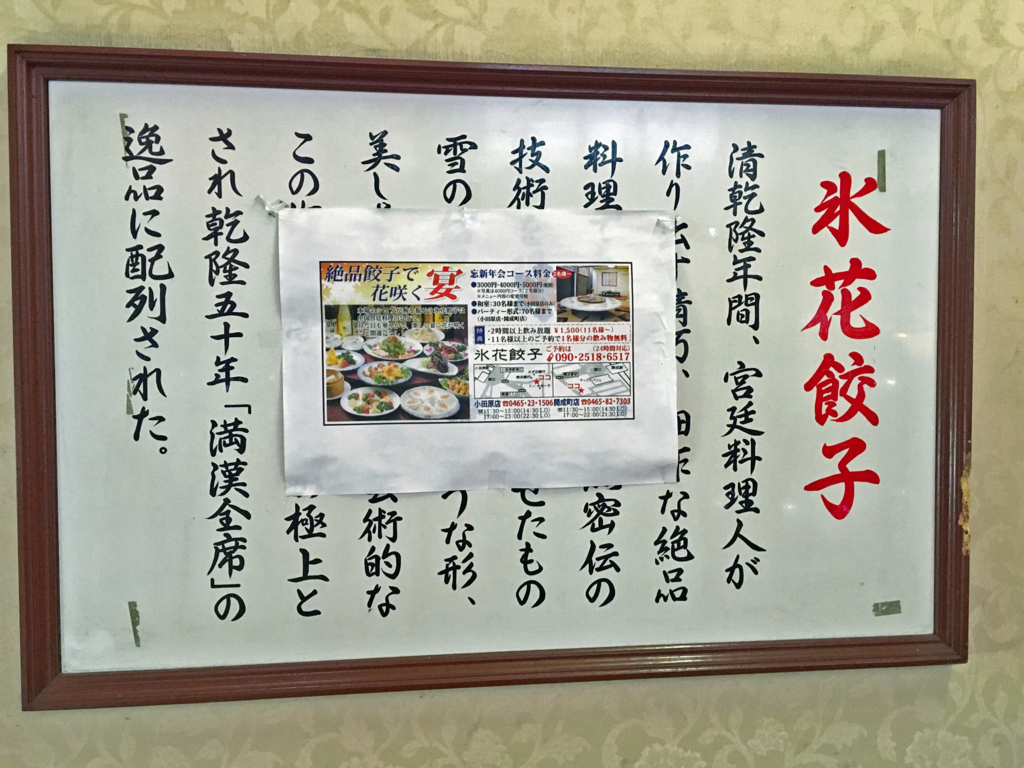 氷花餃子
清乾隆年間、宮廷料理人が
作り
な絶品
料理
密伝の
技術
せたもの
雪の
うな形、
美し
芸術的な
この
極上と
され乾隆五十年「満漢全席」の
逸品に配列された。
絶品餃子で
花咲く宴
忘新年会コース料金
●3000円・4000円・5000円
●和室:30名様まで(小田原店のみ)
●パーティー形式:70名様まで
(小田原店・開成町店)
特典
・2時間以上飲み放題 ¥1,500(11名様~)
・11名様以上のご予約で1名様分の飲み物無料
氷花餃子
ご予約は(24時間対応)
090・2518・6517
小田原店☎0465・23・1506
開成町店☎0465・82・7303
11:30~15:00(14:30 L.O)
17:00~23:00(22:30 L.O)
11:30~15:00(14:30 L.O)
17:00~22:00(21:30 L.O)